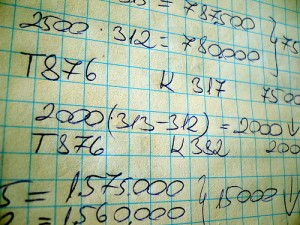 = 787500
2500 · 312 = 780,000 } 75
T 876 K 317 7500
2000 (313-312) = 2000 ↓
T 876 K 382 200
5 = 1575,000 } 15000 ↓
= 1560,000